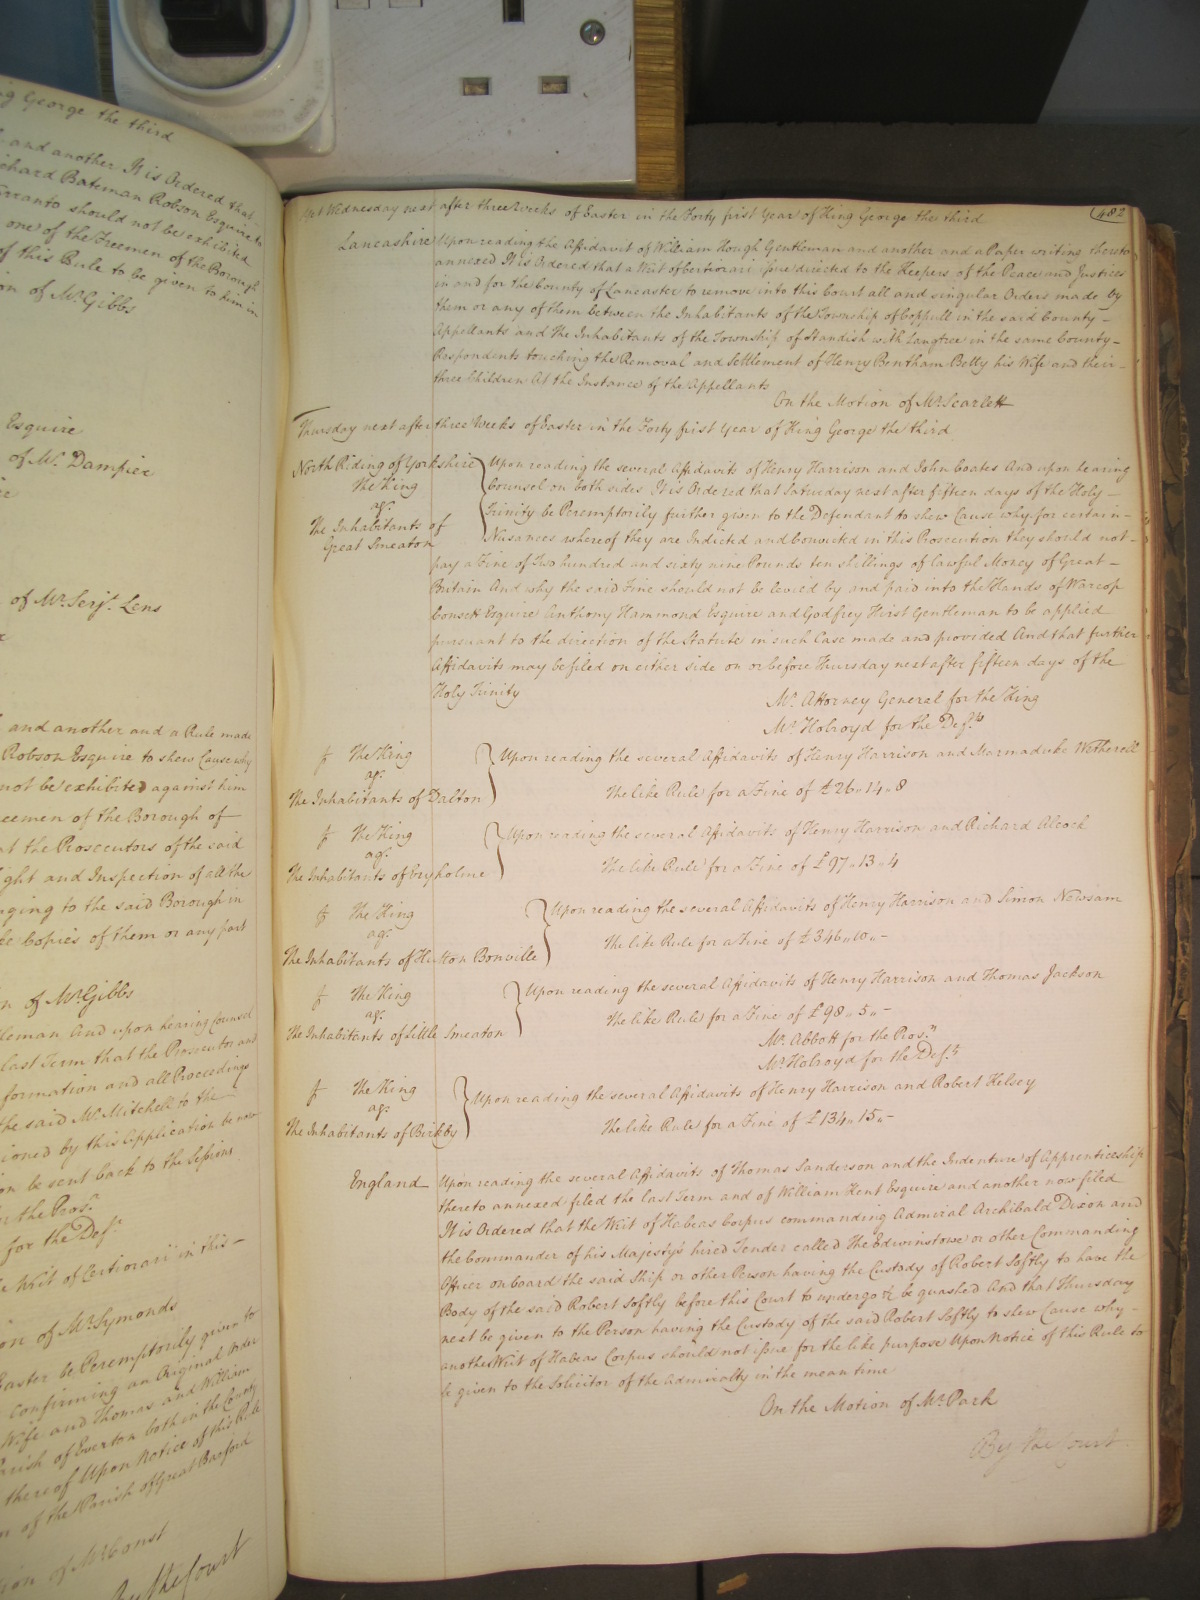 g George the third
and another It is Ordered that
ichard Bateman Robson Esquire
arranto should not be exhibited
one of the Freemen of the Borough
of this Rule to be given to him in
on of Mr. Gibbs
Esquire
of Mr. Dampier
of Mr. Serjt. Lens
and another and a Rule made
Robson Esquire to shew Cause why
not be exhibited against him
eemen of the Borough of
at the Prosecutors of the said
ght and Inspection of all the
nging to the said Borough in
ke Copies of them or any part
n of Mr. Gibbs
tleman And upon hearing Counsel
last Term that the Prosecutor and
formation and all Proceedings
the said Mr. Mitchell to the
ioned by this Application be now
on be sent back to the Sessions
r the Pros.
for the Def.
Writ of Certiorari in this
on of Mr. Symonds
Easter be Peremptorily given to
confirming an Original Order
Wife and Thomas and William
arish of Everton both in the County
thereof Upon Notice of this Rule
of the Parish of Great Barford
tion of Mr. Const
By the Court
482
Yet Wednesday next after three Weeks of Easter in the Forty first Year of King George the third
Lancashire Upon reading the Affidavit of William Hough Gentleman and another and a Paper writing thereto
annexed It is Ordered that a Writ of Certiorari issue directed to the Keepers of the Peace and Justices
in and for the County of Lancaster to remove into this Court all and singular Orders made by
them or any of them between the Inhabitants of the Township of Coppull in the said County
Appellants and The Inhabitants of the Township of Standish with Langtree in the same County
Respondents touching the Removal and Settlement of Henry Bentham Betty his Wife and their
three Children At the Instance of the Appellants
On the Motion of Mr. Scarlett
Thursday next after three Weeks of Easter in the Forty first Year of King George the third
North Riding of Yorkshire Upon reading the several Affidavits of Henry Harrison and John Coates And upon hearing
The King Counsel on both sides It is Ordered that Saturday next after fifteen days of the Holy
agt. Trinity be Peremptorily further given to the Defendant to shew Cause why for certain
The Inhabitants of Great Smeaton Nusances whereof they are Indicted and Convicted in this Prosecution they should not
pay a Fine of Two hundred and sixty nine Pounds ten shillings of lawful Money of Great
Britain And why the said Fine should not be levied by and paid into the Hands of Warcop
Consett Esquire Anthony Hammond Esquire and Godfrey Hirst Gentleman to be applied
pursuant to the direction of the Statute in such Case made and provided And that further
Affidavits may be filed on either side on or before Thursday next after fifteen days of the
Holy Trinity
Mr. Attorney General for the King
Mr. Holroyd for the Defts.
The King Upon reading the several Affidavits of Henry Harrison and Marmaduke Wetherell
agt.
The Inhabitants of Dalton The like Rule for a Fine of £26 „ 14 „ 8
The King Upon reading the several Affidavits of Henry Harrison and Richard Alcock
agt.
The Inhabitants of Eryholme The like Rule for a Fine of £97 „ 13 „ 4
The King Upon reading the several Affidavits of Henry Harrison and Simon Newsam
agt.
The Inhabitants of Hutton Bonville The like Rule for a Fine of £346 „ 10 „ -
The King Upon reading the several Affidavits of Henry Harrison and Thomas Jackson
agt.
The Inhabitants of Little Smeaton The like Rule for a Fine of £98 „ 5 „ -
Mr. Abbott for the Pros.
Mr. Holroyd for the Defts.
The King Upon reading the several Affidavits of Henry Harrison and Robert Kelsey
agt.
The Inhabitants of Birkby The like Rule for a Fine of £134 „ 15 „ -
England Upon reading the several Affidavits of Thomas Sanderson and the Indenture of Apprenticeship
thereto annexed filed the last Term and of William Kent Esquire and another now filed
It is Ordered that the Writ of Habeas Corpus commanding Admiral Archibald Dixon and
the Commander of his Majesty's hired Tender called The Edwinstowe or other Commanding
Officer on board the said Ship or other Person having the Custody of Robert Softly to have the
Body of the said Robert Softly before this Court to undergo &c be quashed And that Thursday
next be given to the Person having the Custody of the said Robert Softly to shew Cause why
another Writ of Habeas Corpus should not issue for the like purpose Upon Notice of this Rule to
be given to the Solicitor of the Admiralty in the mean time
On the Motion of Mr. Park
By the Court